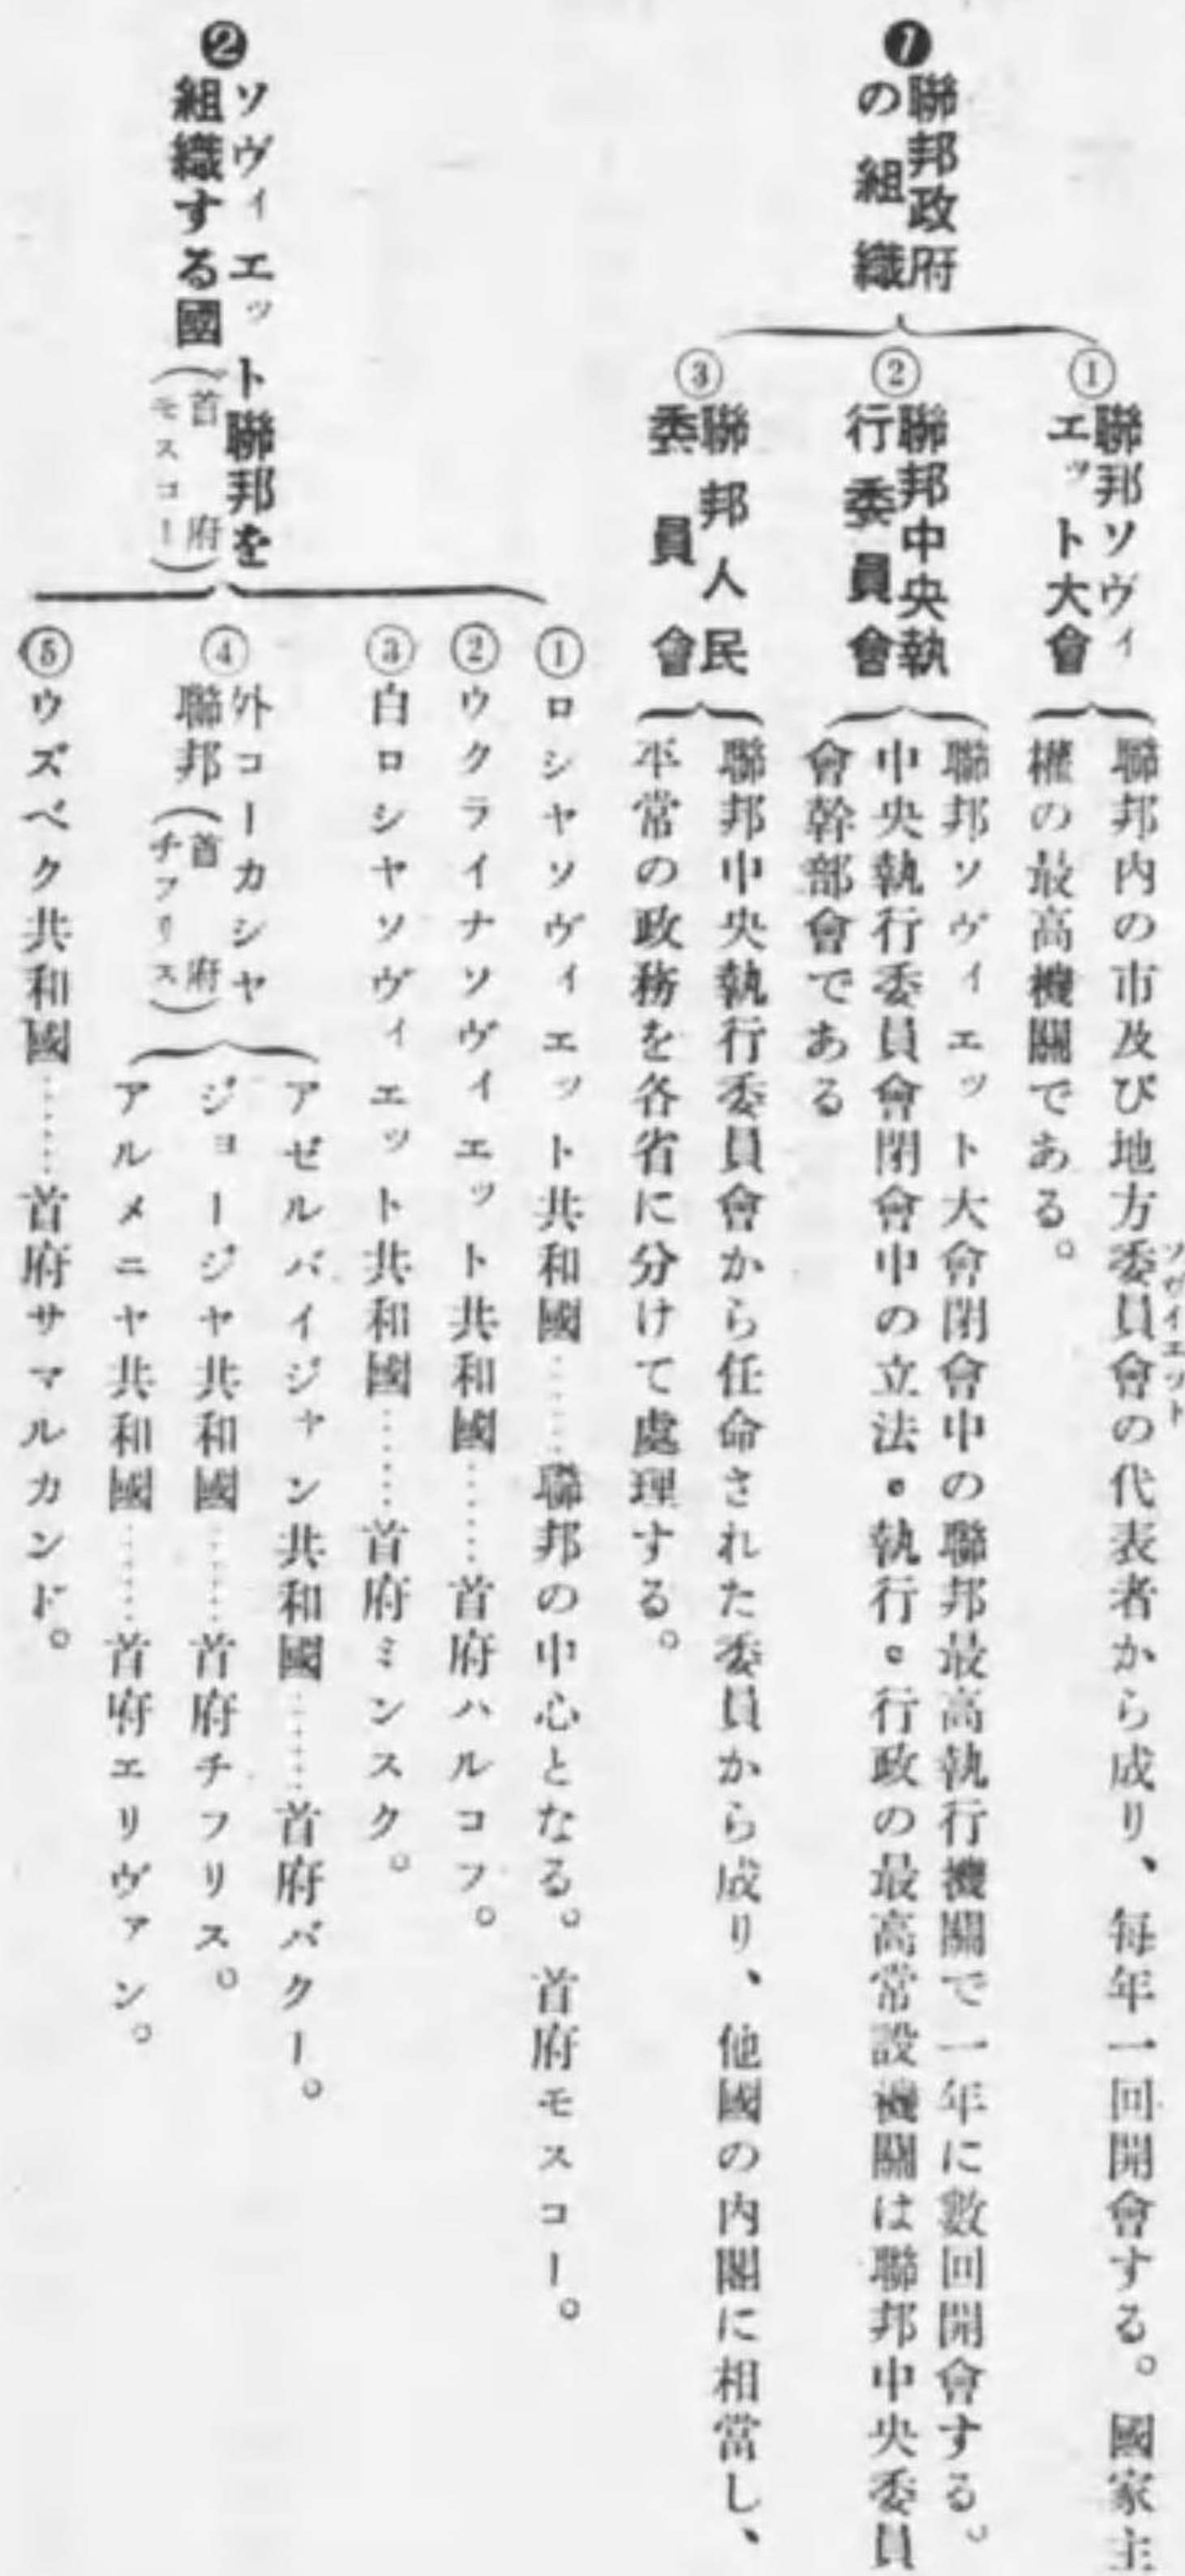 ❶聯邦政府
の組織
①聯邦ソヴィ
エット大會
聯邦内の市及び地方委員會の代表者から成り、每年一回開會する。國家主
ソヴイエット
權の最高機關である。
②聯邦中央執
行委員會
聯邦ソヴィエット大會閉會中の聯邦最高執行機關で一年に數回開會する。
中央執行委員會閉會中の立法。執行。行政の最高常設機關は聯邦中央委員
會幹部會である
③聯邦人民
委員會
聯邦中央執行委員會から任命された委員から成り、他國の内閣に相當し、
平常の政務を各省に分けて處理する。
❷ソヴィエット聯邦を
組織する國(首府
モスコー)
①ロシヤソヴィエット共和國……聯邦の中心となる。首府モスコー。
②ウクライナソヴィエット共和國……首府ハルコフ。
③白ロシヤソヴィエット共和國……首府ミンスク。
④外コーカシヤ
聯邦(首府
チフリス)
アゼルバイジャン共和國……首府バクー。
ジョージヤ共和國……首府チフリス。
アルメニヤ共和國……首府エリヴァン。
⑤ウズベク共和國……首府サマルカンド。